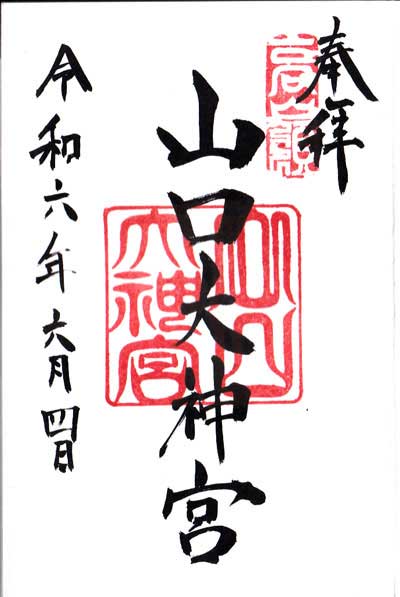 奉拝
山口大神宮
令和六年六月四日
山口
大神宮